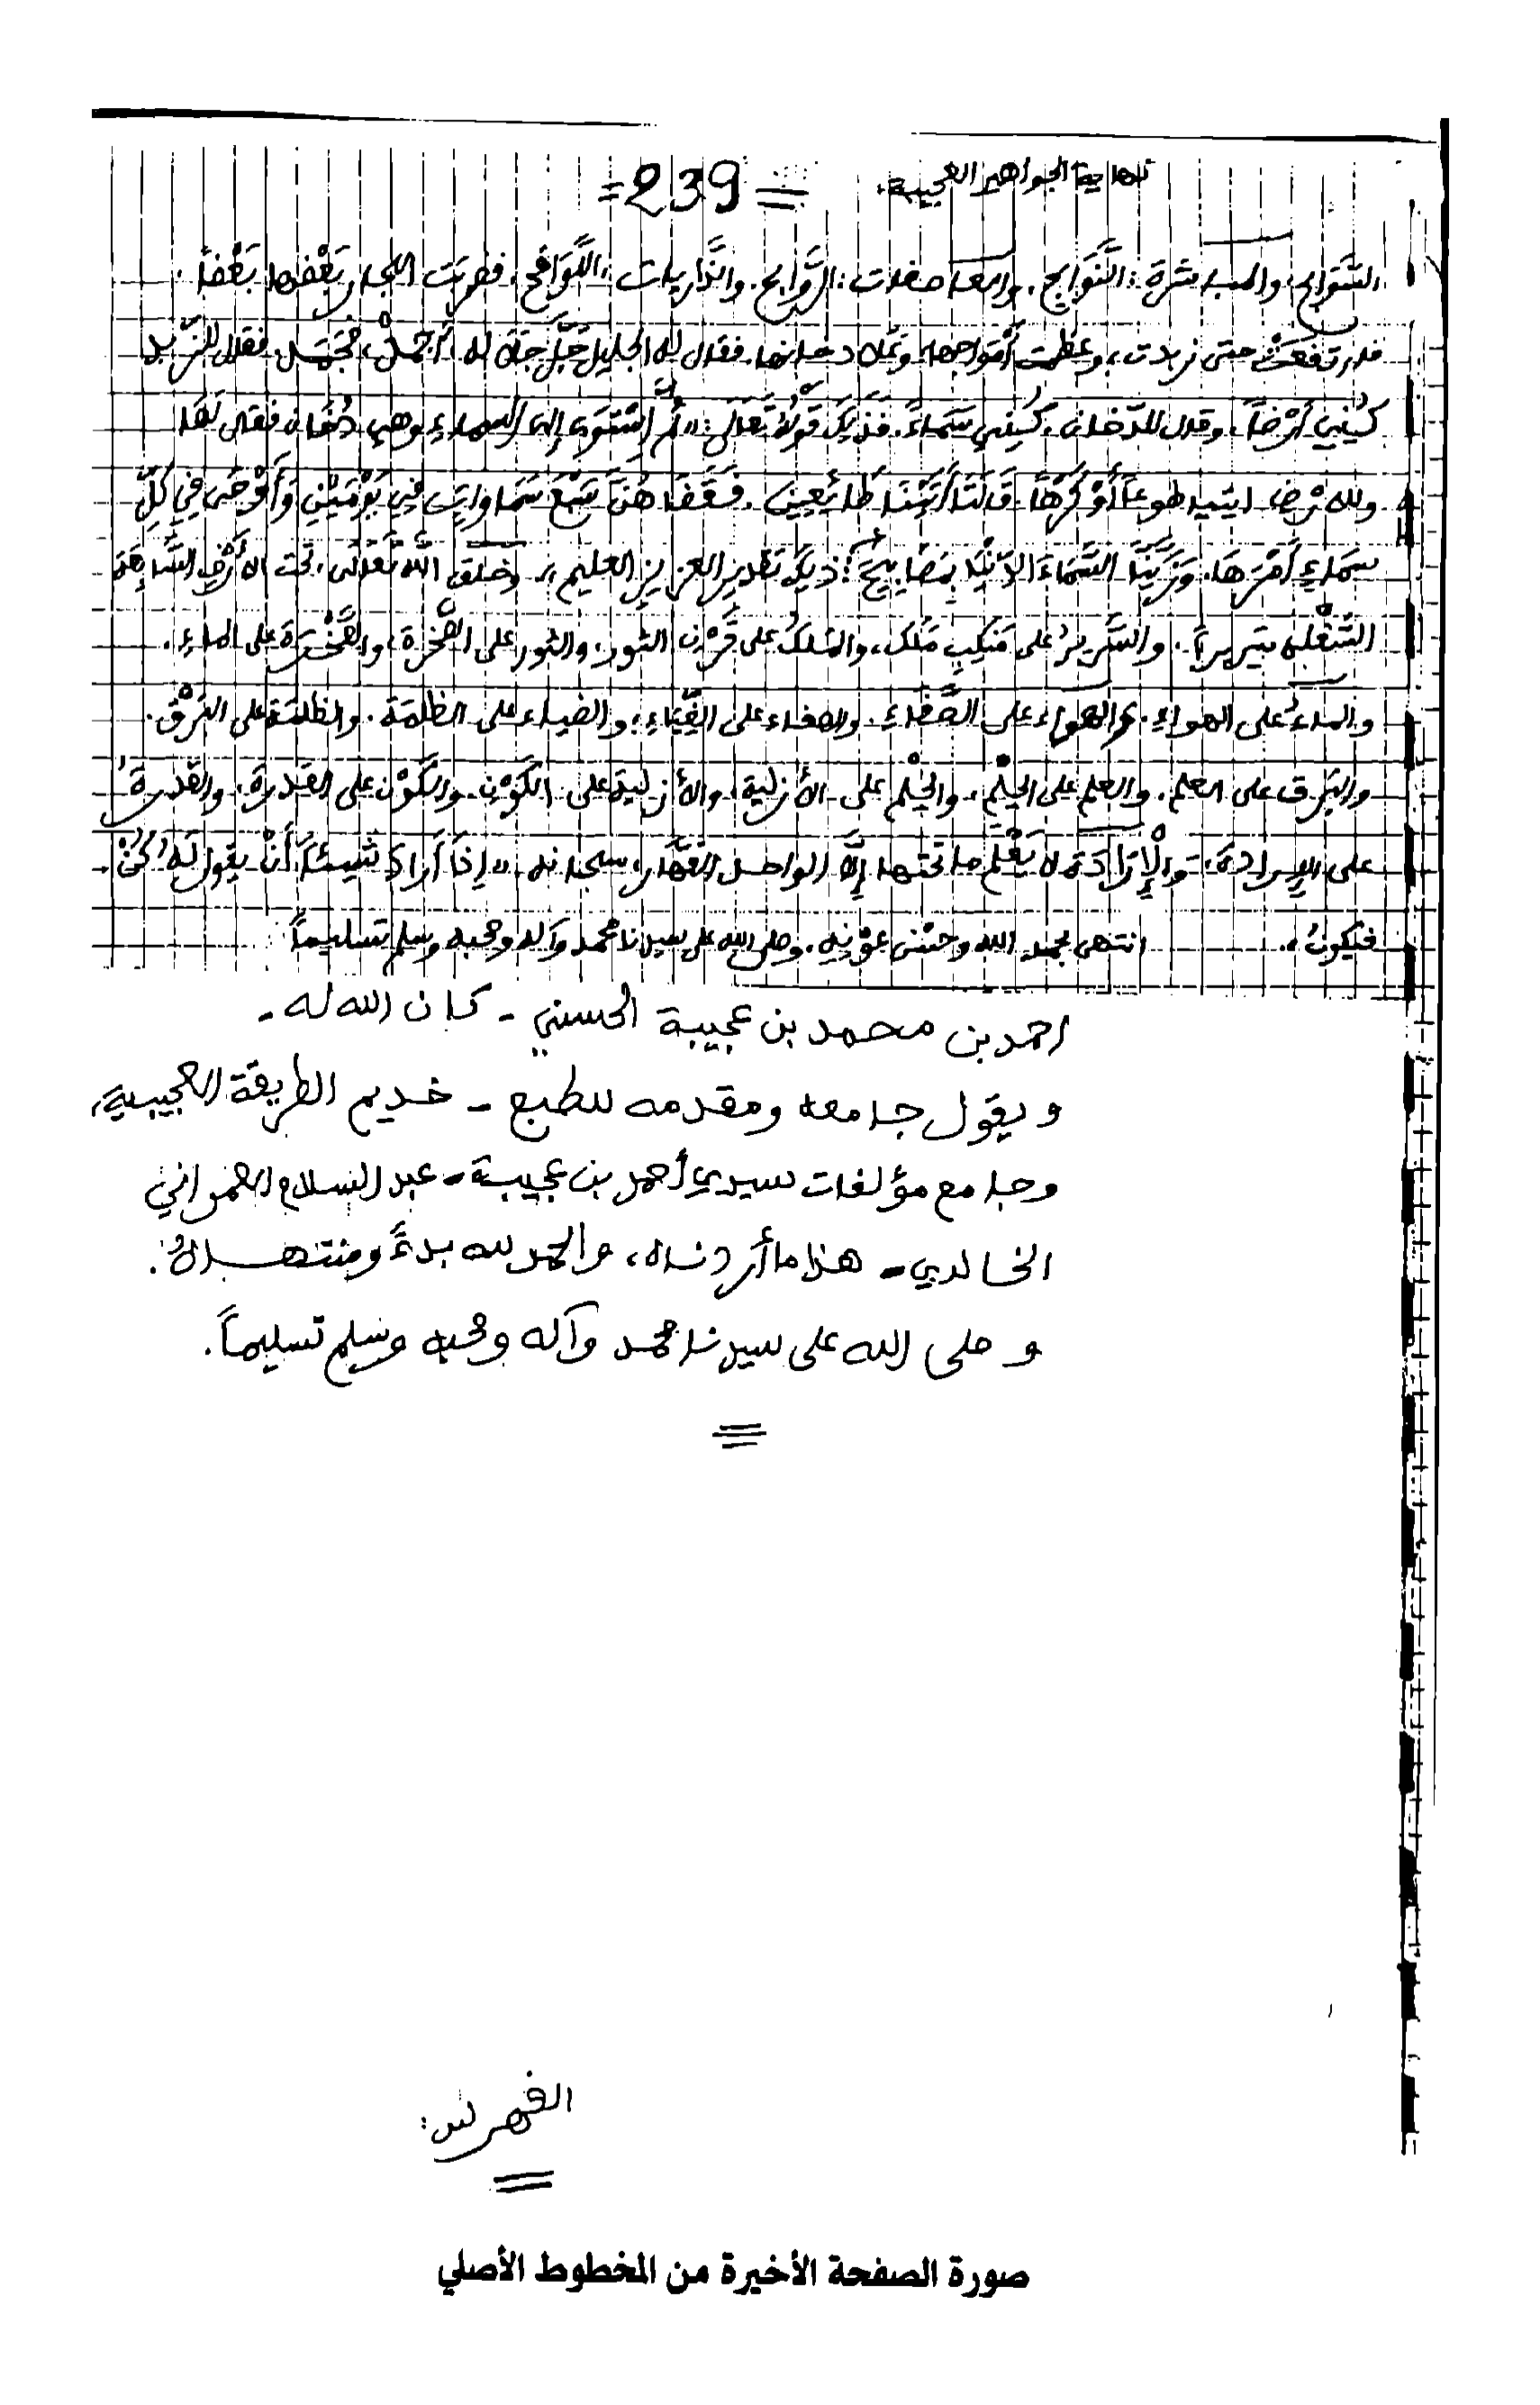 نهاية الجواهر العجيبة.
= 239 =
السَّوَابِح. والمباشرة: النَّوَابِح. والعاصفات: الرَّوَابِح. والذَّاريات: اللَّوَاقح. فضربت البحار بَعْضها بَعْضاً.
فارتفعَتْ حتى زبدت، وعظمت أمْوَاجها وعَلا دخانها. فقال له الجليل جَلَّ جَلَاله اجْمُدْ، فجَمَد. فقال للزَّبد
كُنِي أرْضاً. وقال للدّخان، كُنِي سَمَاءً. فَذَلِكَ قَوْلُهُ تَعَالَى: «ثُمَّ اسْتَوَى إلى السماءِ وهي دُخَان فقال لَهَا
وللارْضِ ايتيا طوعاً أَوْ كَرْهاً. قَالَتَا أَتَيْنَا طَائِعِينَ. فَقَضَاهُنَّ سَبْعَ سَمَاوَاتٍ فِي يَوْمَيْنِ وَأَوْحَى فِي كُلِّ
سَمَاءٍ أَمْرَهَا. وَزَيَّنَّا السَّمَاءَ الدُّنْيَا بِمَصَابِيحَ؛ ذلِكَ تقدير العزيزِ العليم». وخلق اللَّه تَعَالَى. تحت الأَرْضِ السَّابِعَة
السُّفْلى سَرِيراً. والسَّرِيرُ على مَنكِبِ مَلَك، والمَلَكُ على قَرْنِ الثور. والثور على الصَّخرة، والصَّخْرَة على الماء.
والماءُ على الهواءِ. والهواء على الصَّفاءِ. والصفاء على الضِّيَاءِ، والضياء على الظلمَة. والظلمَة على البَرْق.
والبَرق على العلم. والعلم على الحِلْم، والحِلْم على الأزلية، والأزلية على الكَوْن. والكَوْن على القدرة. والقدرةُ
على الإرادة، وَالْإِرَادَة لا يَعْلَم ما تحتها إلَّا الواحد القهّار، سبحانه «إِذَا أَرَادَ شَيئاً أَنْ يقول لَهُ كُنْ.
فيكونُ». انتهى بحمد الله وحسْن عوْنِهِ. وصلى الله على سيدنا محمد وآله وصحبه وسلم تسليماً
احمد بن محمد بن عجيبة الحسني - كان الله له -
ويقول جامعه ومقدمه للطبع - خديم الطريقة العجيبية،
وجامع مؤلفات سيدي أحمد بن عجيبة - عبد السلام العمراني
الخالدي - هذا ما أردناه، والحمد لله بدءً ومنتهاهُ.
وصلى الله على سيدنا محمد وآله وصحبه وسلم تسليماً.
الفهرس:
صورة الصفحة الأخيرة من المخطوط الأصلي